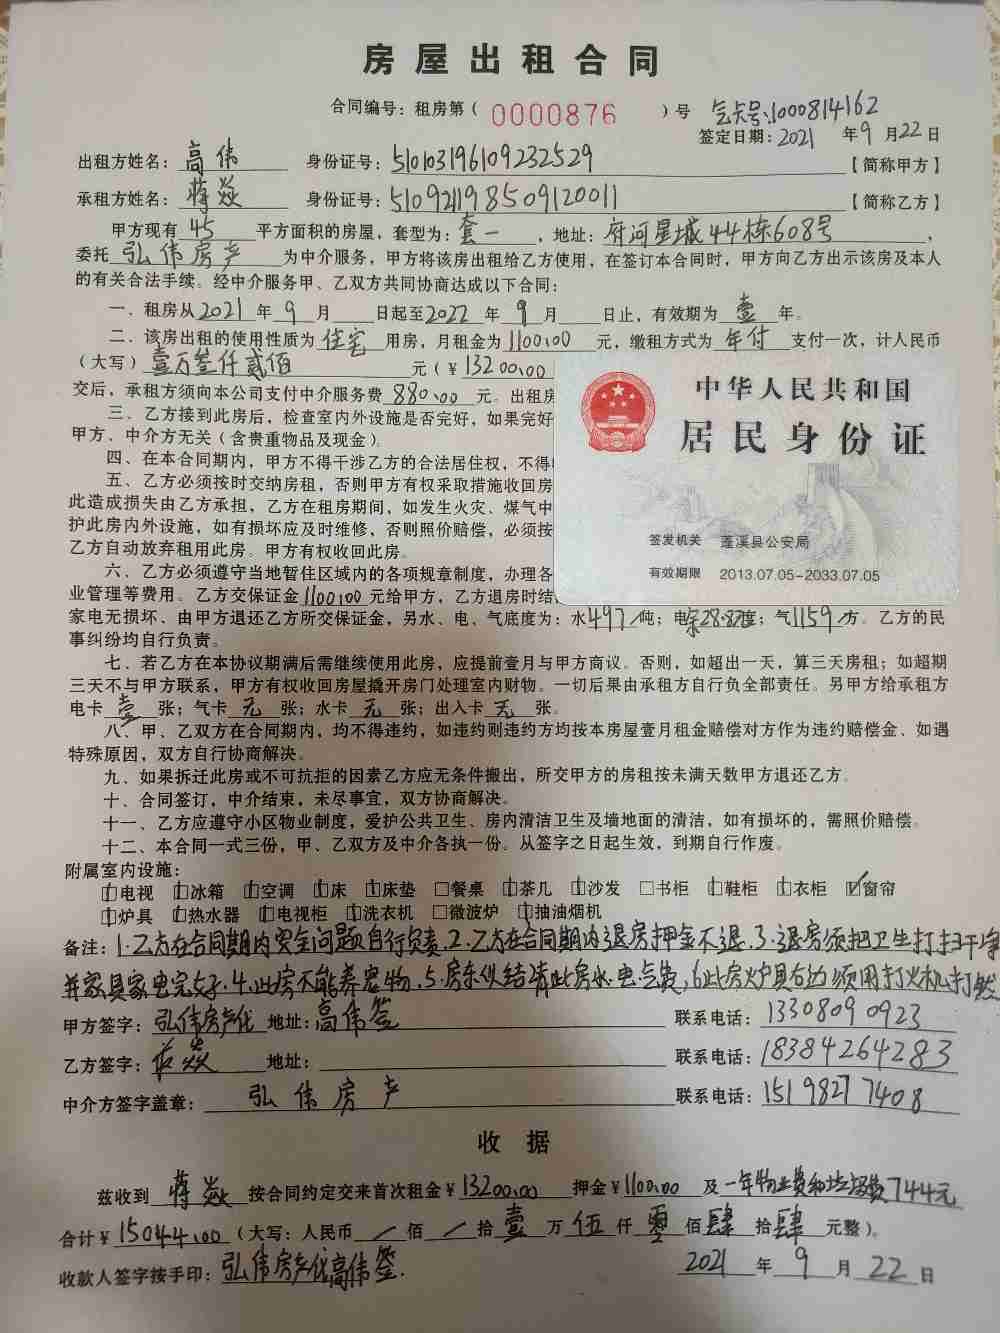 房屋出租合同
合同编号：租房第（ 0000876 ）号 气卡号：1000814162
签定日期：2021 年 9 月 22 日
出租方姓名：高伟 身份证号：510103196109232529 【简称甲方】
承租方姓名：蒋焱 身份证号：510921198509120011 【简称乙方】
甲方现有 45 平方面积的房屋，套型为：套一，地址：府河星城44栋608号，
委托 弘伟房产 为中介服务，甲方将该房出租给乙方使用，在签订本合同时，甲方向乙方出示该房及本人
的有关合法手续。经中介服务甲、乙双方共同协商达成以下合同：
一、租房从 2021 年 9 月 日起至 2022 年 9 月 日止，有效期为 壹 年。
二、该房出租的使用性质为 住宅 用房，月租金为 1100.00 元，缴租方式为 年付 支付一次，计人民币
（大写）壹万叁仟贰佰 元（￥13200.00
交后，承租方须向本公司支付中介服务费 880.00 元。出租房
三、乙方接到此房后，检查室内外设施是否完好，如果完好
甲方、中介方无关（含贵重物品及现金）。
四、在本合同期内，甲方不得干涉乙方的合法居住权，不得
五、乙方必须按时交纳房租，否则甲方有权采取措施收回房
此造成损失由乙方承担，乙方在租房期间，如发生火灾、煤气中
护此房内外设施，如有损坏应及时维修，否则照价赔偿，必须按
乙方自动放弃租用此房。甲方有权收回此房。
六、乙方必须遵守当地暂住区域内的各项规章制度，办理各
业管理等费用。乙方交保证金 1100.00 元给甲方，乙方退房时结
家电无损坏、由甲方退还乙方所交保证金，另水、电、气底度为：水 497 吨；电 余28.87 度；气 1159 方。乙方的民
事纠纷均自行负责。
中华人民共和国
居民身份证
签发机关 蓬溪县公安局
有效期限 2013.07.05-2033.07.05
七、若乙方在本协议期满后需继续使用此房，应提前壹月与甲方商议。否则，如超出一天，算三天房租；如超期
三天不与甲方联系，甲方有权收回房屋撬开房门处理室内财物。一切后果由承租方自行负全部责任。另甲方给承租方
电卡 壹 张；气卡 无 张；水卡 无 张；出入卡 无 张。
八、甲、乙双方在合同期内，均不得违约，如违约则违约方均按本房屋壹月租金赔偿对方作为违约赔偿金、如遇
特殊原因，双方自行协商解决。
九、如果拆迁此房或不可抗拒的因素乙方应无条件搬出，所交甲方的房租按未满天数甲方退还乙方。
十、合同签订，中介结束，未尽事宜，双方协商解决。
十一、乙方应遵守小区物业制度，爱护公共卫生、房内清洁卫生及墙地面的清洁，如有损坏的，需照价赔偿。
十二、本合同一式三份，甲、乙双方及中介各执一份。从签字之日起生效，到期自行作废。
附属室内设施：
□电视 □冰箱 □空调 □床 □床垫 □餐桌 □茶几 □沙发 □书柜 □鞋柜 □衣柜 ☑窗帘
□炉具 □热水器 □电视柜 □洗衣机 □微波炉 □抽油烟机
备注：1.乙方在合同期内安全问题自行负责.2.乙方在合同期内退房押金不退.3.退房须把卫生打扫干净
并家具家电完好.4.此房不能养宠物.5.房东以结清此房水电气费，6此房炉具右边须用打火机打燃
甲方签字：弘伟房产代 地址：高伟签 联系电话：13308090923
乙方签字：蒋焱 地址： 联系电话：18384264283
中介方签字盖章：弘伟房产 联系电话：15198277408
收据
兹收到 蒋焱 按合同约定交来首次租金￥13200.00 押金￥1100.00 及 一年物业费和垃圾费744元
合计￥15044.00（大写：人民币 / 佰 / 拾 壹 万 伍 仟 零 佰 肆 拾 肆 元整）。
收款人签字按手印：弘伟房产代高伟签. 2021 年 9 月 22 日